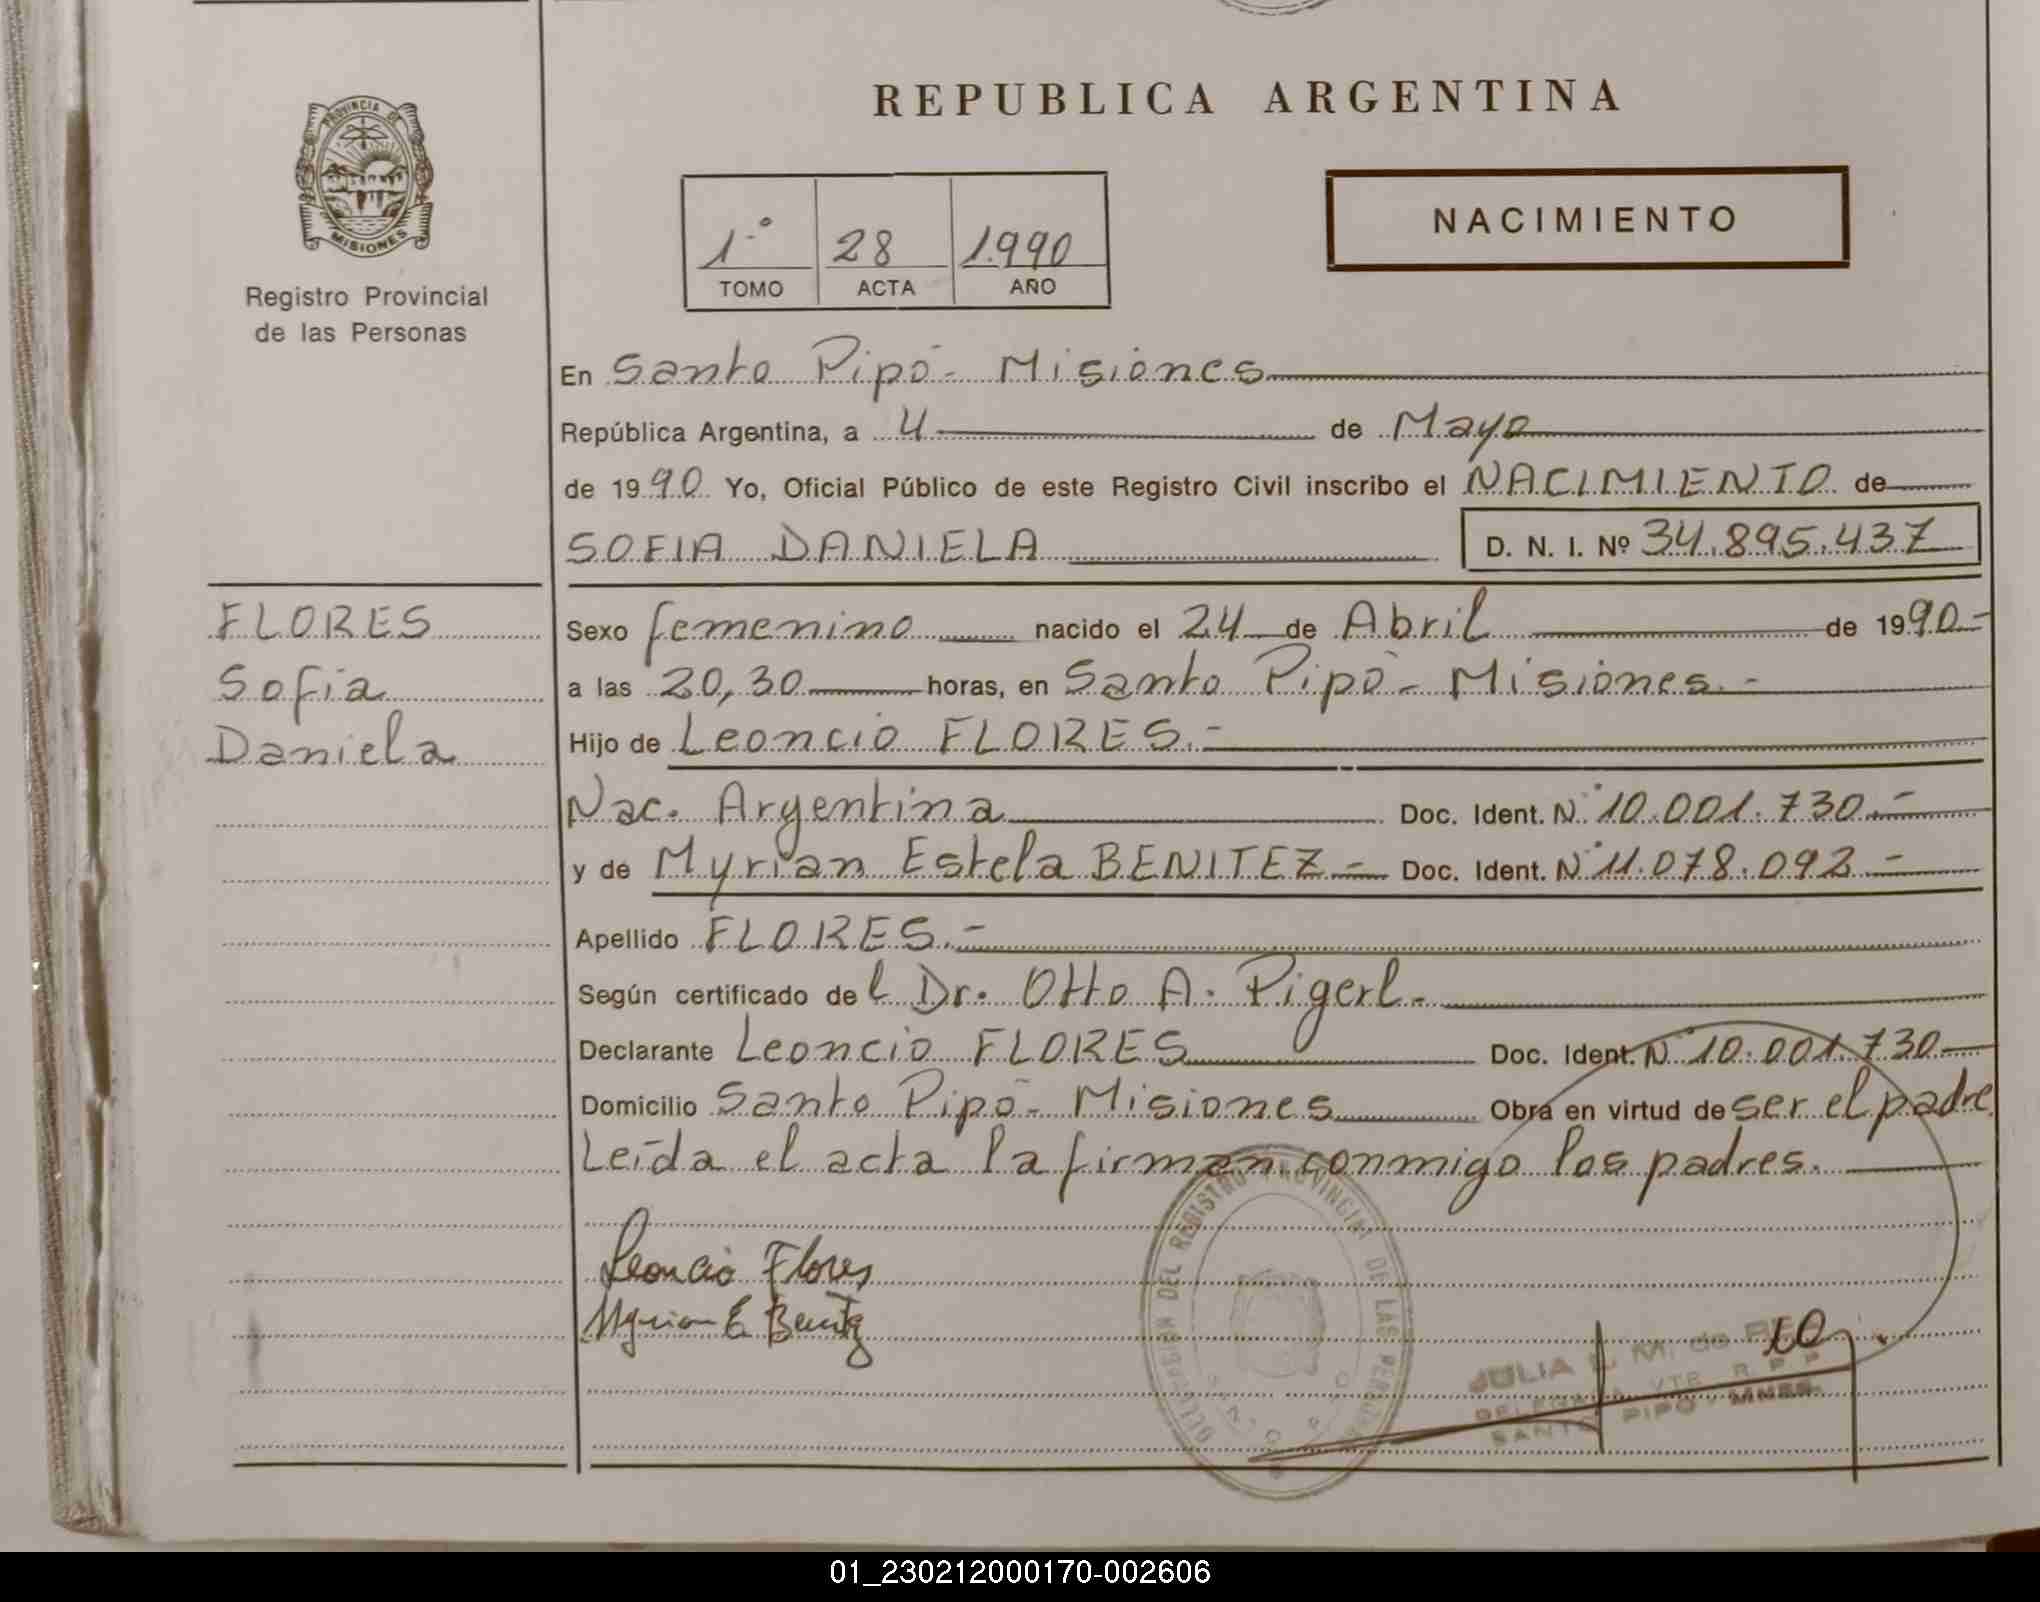 REPUBLICA ARGENTINA
PROVINCIA DE
MISIONES
Registro Provincial
de las Personas
1º 28 1.990
TOMO ACTA AÑO
NACIMIENTO
En Santo Pipó - Misiones
República Argentina, a 4 de Mayo
de 1990 Yo, Oficial Público de este Registro Civil inscribo el NACIMIENTO de
SOFIA DANIELA D. N. I. Nº 34.895.437
FLORES
Sofia
Daniela
Sexo femenino nacido el 24 de Abril de 1990.-
a las 20,30 horas, en Santo Pipó - Misiones.-
Hijo de Leoncio FLORES.-
Nac. Argentina Doc. Ident. Nº 10.001.730.-
y de Myrian Estela BENITEZ - Doc. Ident. Nº 11.078.092 -
Apellido FLORES.-
Según certificado del Dr. Otto A. Pigerl.-
Declarante Leoncio FLORES Doc. Ident. Nº 10.001.730
Domicilio Santo Pipó - Misiones Obra en virtud de ser el padre
Leída el acta la firman conmigo los padres.
Leoncio Flores
Myrian E Benitez
DELEGACION DEL REGISTRO PROVINCIAL DE LAS PERSONAS
SANTO PIPO
JULIA M. de
DELEGADA R. P. P.
SANTO PIPO - MNES.
01_230212000170-002606